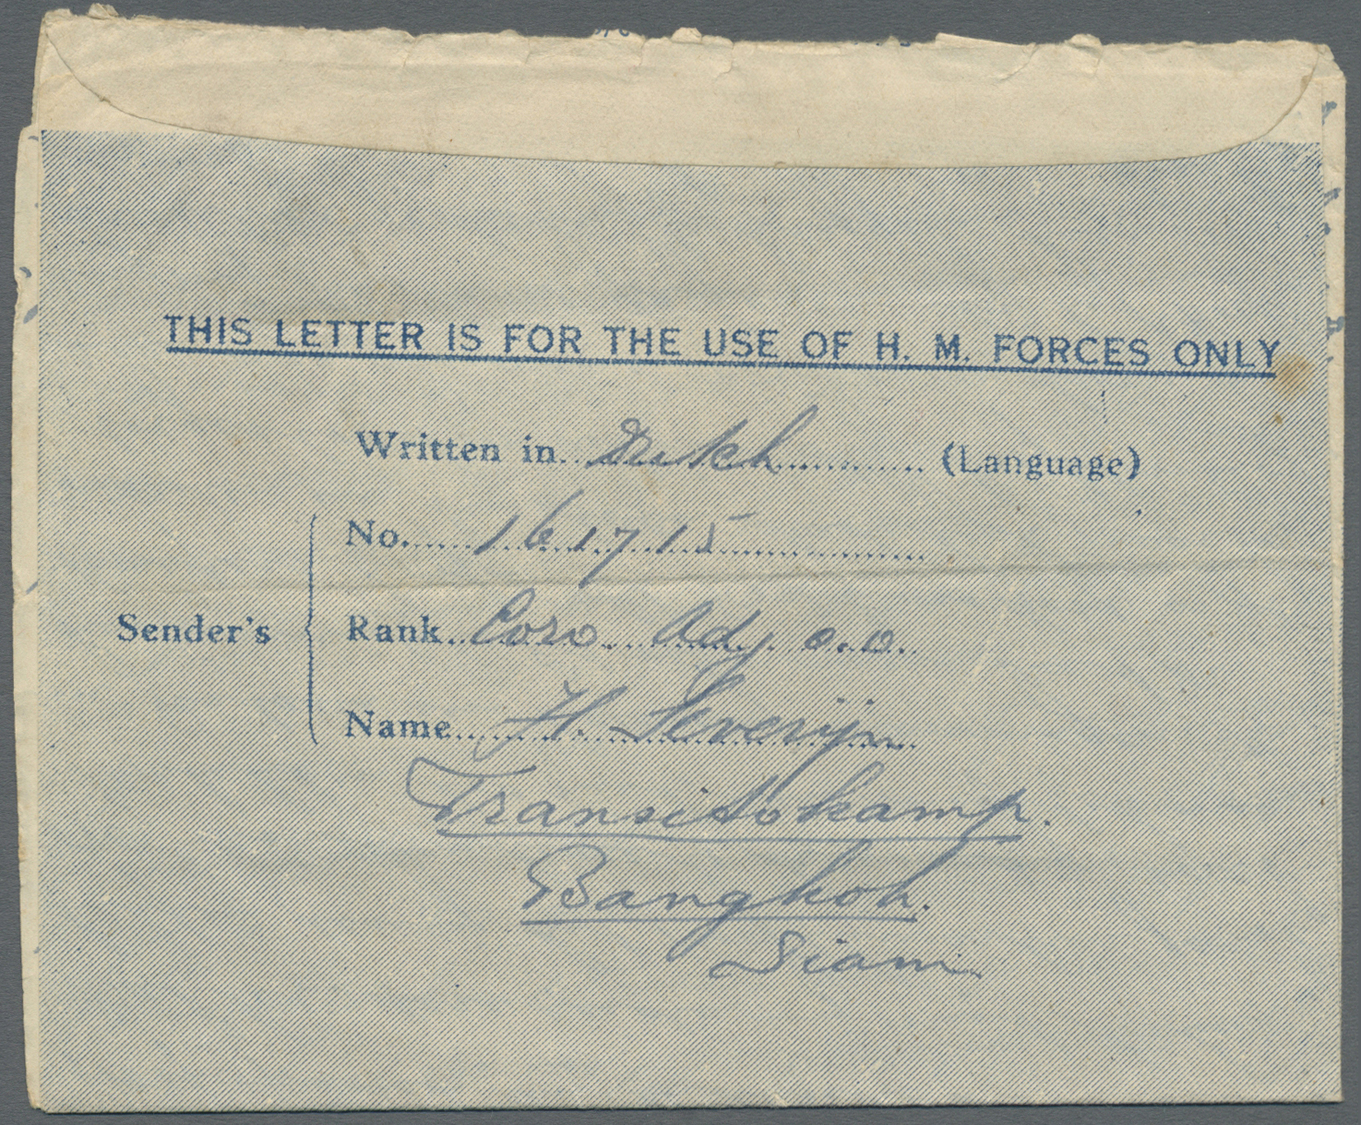 THIS LETTER IS FOR THE USE OF H. M. FORCES ONLY
Written in Dutch (Language)
No. 161715
Sender's
Rank Adj. O.O.
Name H. Severijn
Transitokamp.
Bangkok.
Siam.